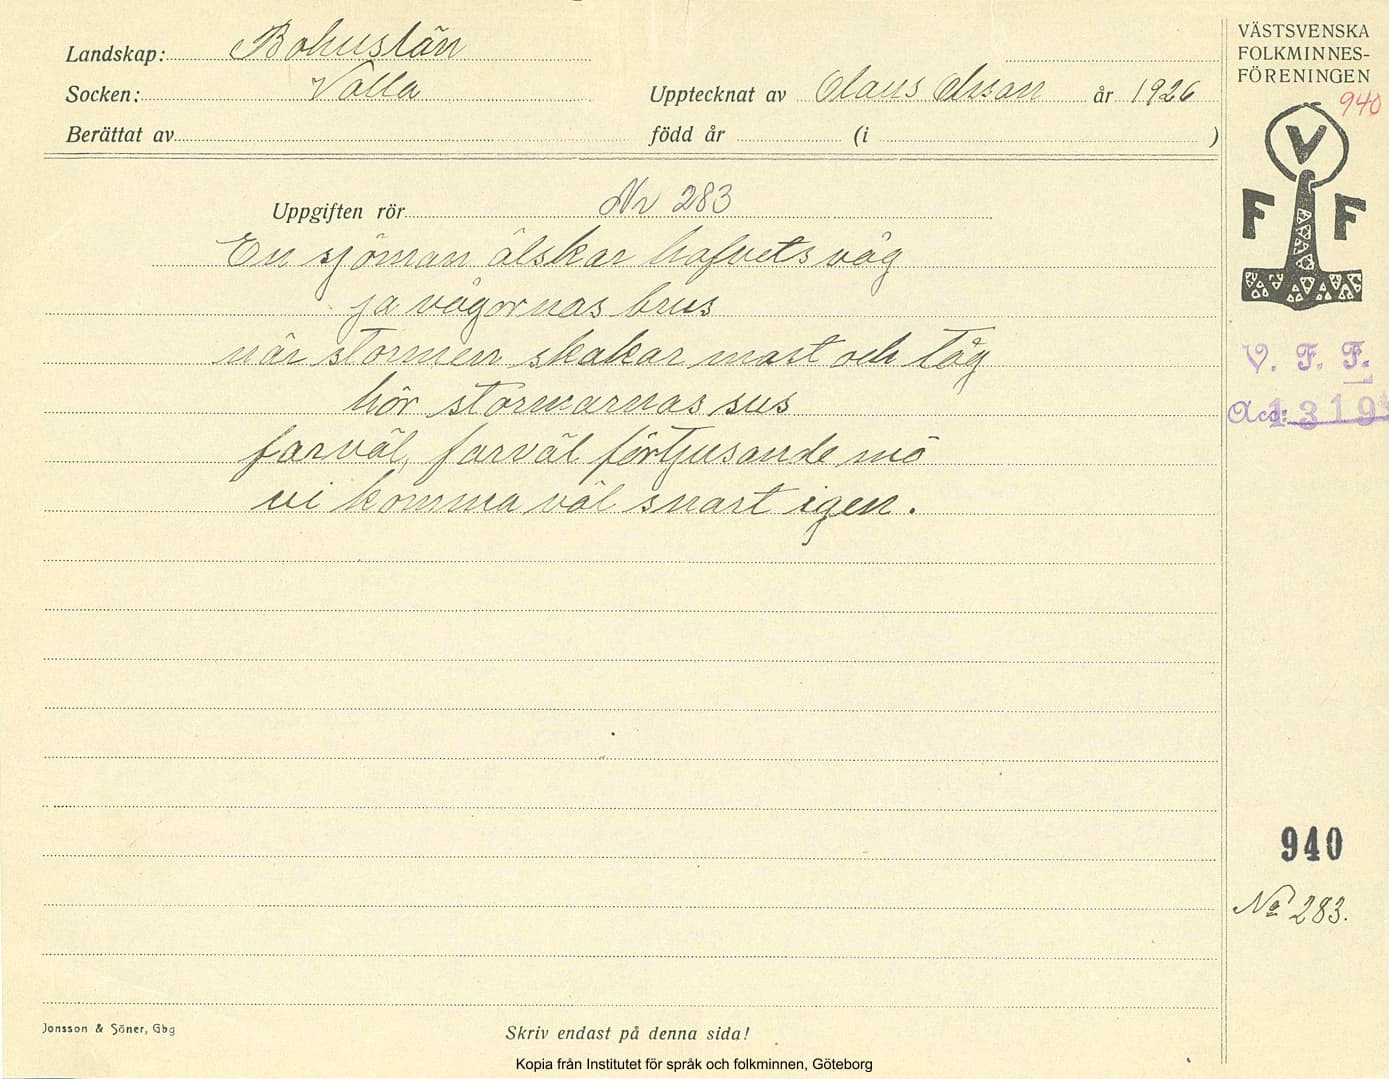 Landskap: Bohuslän
Socken: Valla
Upptecknat av Olaus Olsson år 1926
Berättat av
född år (i )
Uppgiften rör Nr 283
En sjöman älskar hafvets våg
ja vågornas brus
när stormen skakar mast och tåg
hör stormarnas sus
farväl, farväl förtjusande mö
vi komma väl snart igen.
VÄSTSVENSKA
FOLKMINNES-
FÖRENINGEN
940
V
F F
V. F. F.
Acc: 1319
940
No 283.
Jonsson & Söner, Gbg
Skriv endast på denna sida!
Kopia från Institutet för språk och folkminnen, Göteborg